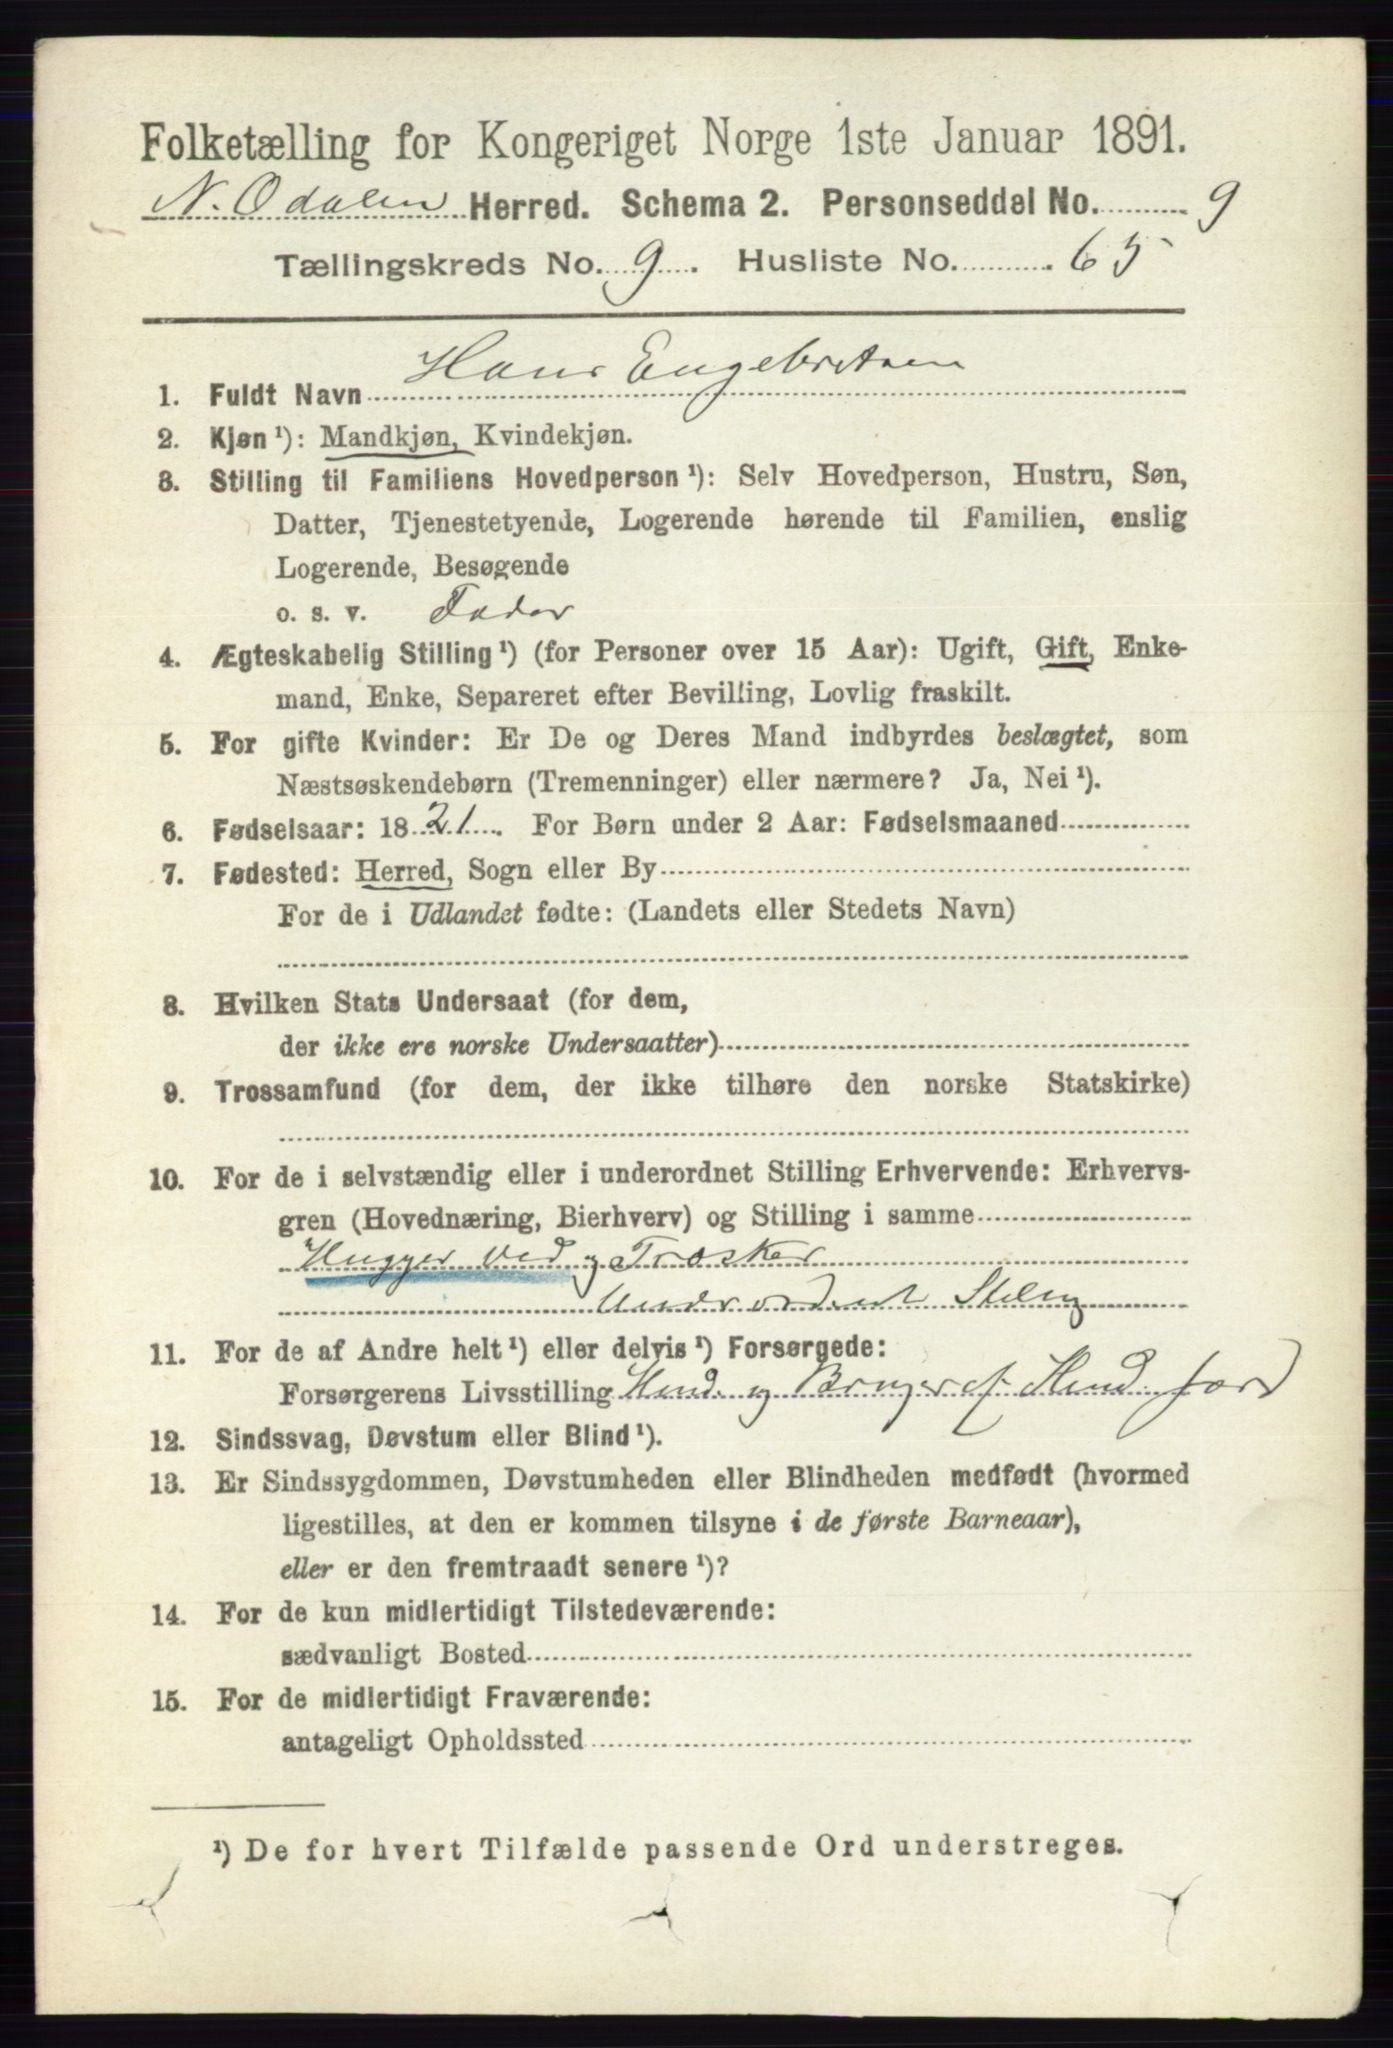 Folketælling for Kongeriget Norge 1ste Januar 1891.
N. Odalen Herred. Schema 2. Personseddel No. 9
Tællingskreds No. 9. Husliste No. 65
1. Fuldt Navn Hans Engebretsen
2. Kjøn ¹): Mandkjøn, Kvindekjøn.
3. Stilling til Familiens Hovedperson ¹): Selv Hovedperson, Hustru, Søn,
Datter, Tjenestetyende, Logerende hørende til Familien, enslig
Logerende, Besøgende
o. s. v. Fader
4. Ægteskabelig Stilling ¹) (for Personer over 15 Aar): Ugift, Gift, Enke-
mand, Enke, Separeret efter Bevilling, Lovlig fraskilt.
5. For gifte Kvinder: Er De og Deres Mand indbyrdes beslægtet, som
Næstsøskendebørn (Tremenninger) eller nærmere? Ja, Nei ¹).
6. Fødselsaar: 1821. For Børn under 2 Aar: Fødselsmaaned
7. Fødested: Herred, Sogn eller By
For de i Udlandet fødte: (Landets eller Stedets Navn)
8. Hvilken Stats Undersaat (for dem,
der ikke ere norske Undersaatter)
9. Trossamfund (for dem, der ikke tilhøre den norske Statskirke)
10. For de i selvstændig eller i underordnet Stilling Erhvervende: Erhvervs-
gren (Hovednæring, Bierhverv) og Stilling i samme
Hugger Ved og Trosker
Underordent Stelling
11. For de af Andre helt ¹) eller delvis ¹) Forsørgede:
Forsørgerens Livsstilling og Bruger af jord
12. Sindssvag, Døvstum eller Blind ¹).
13. Er Sindssygdommen, Døvstumheden eller Blindheden medfødt (hvormed
ligestilles, at den er kommen tilsyne i de første Barneaar),
eller er den fremtraadt senere ¹)?
14. For de kun midlertidigt Tilstedeværende:
sædvanligt Bosted
15. For de midlertidigt Fraværende:
antageligt Opholdssted
¹) De for hvert Tilfælde passende Ord understreges.